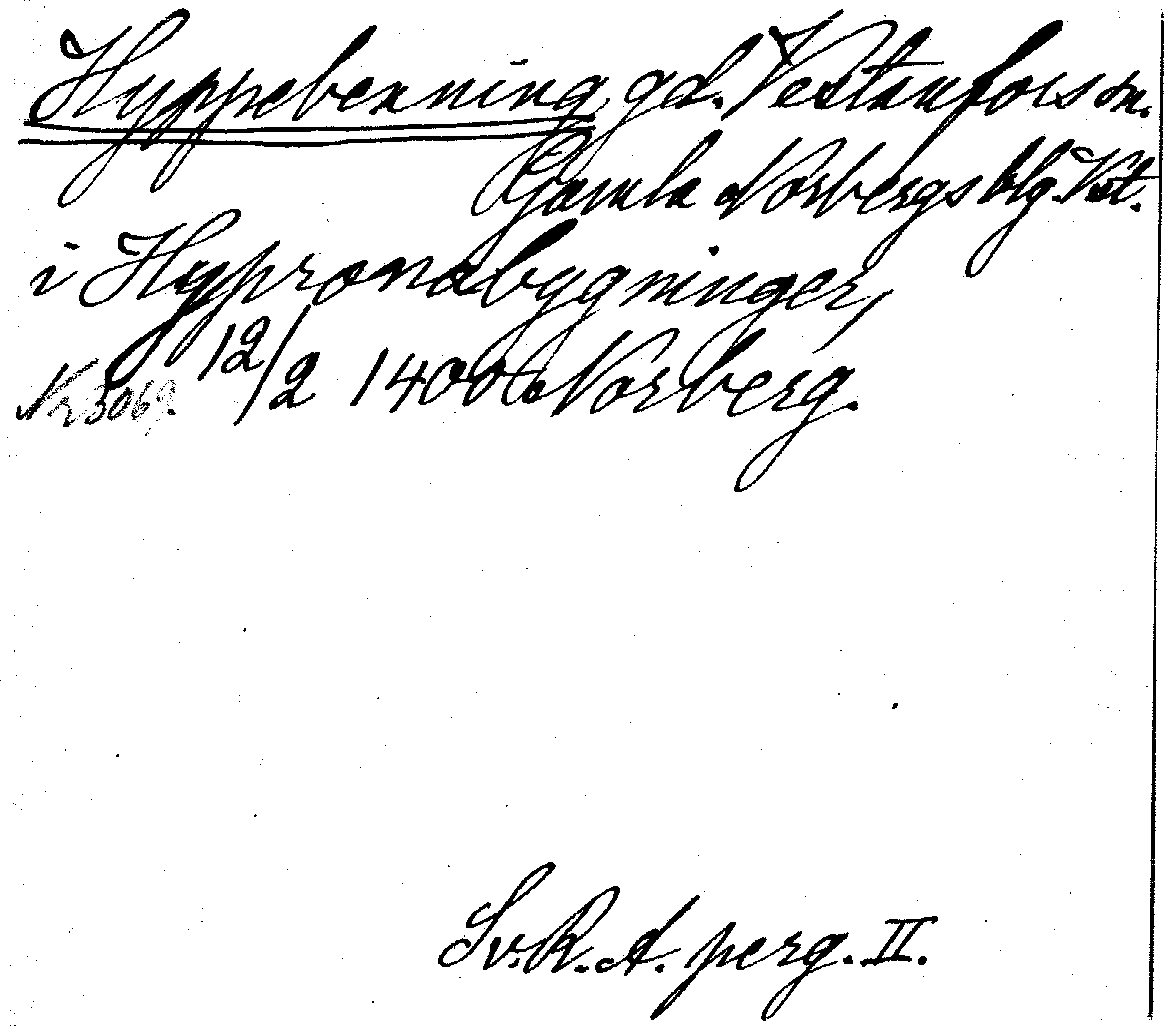 Hyppebenning, gd. Vestanfors sn.
Gamla Norbergs blg. Vst.
i Hypronabygninger,
12/2 1400 Norberg.
Nr 3069.
Sv. R. A. perg. II.